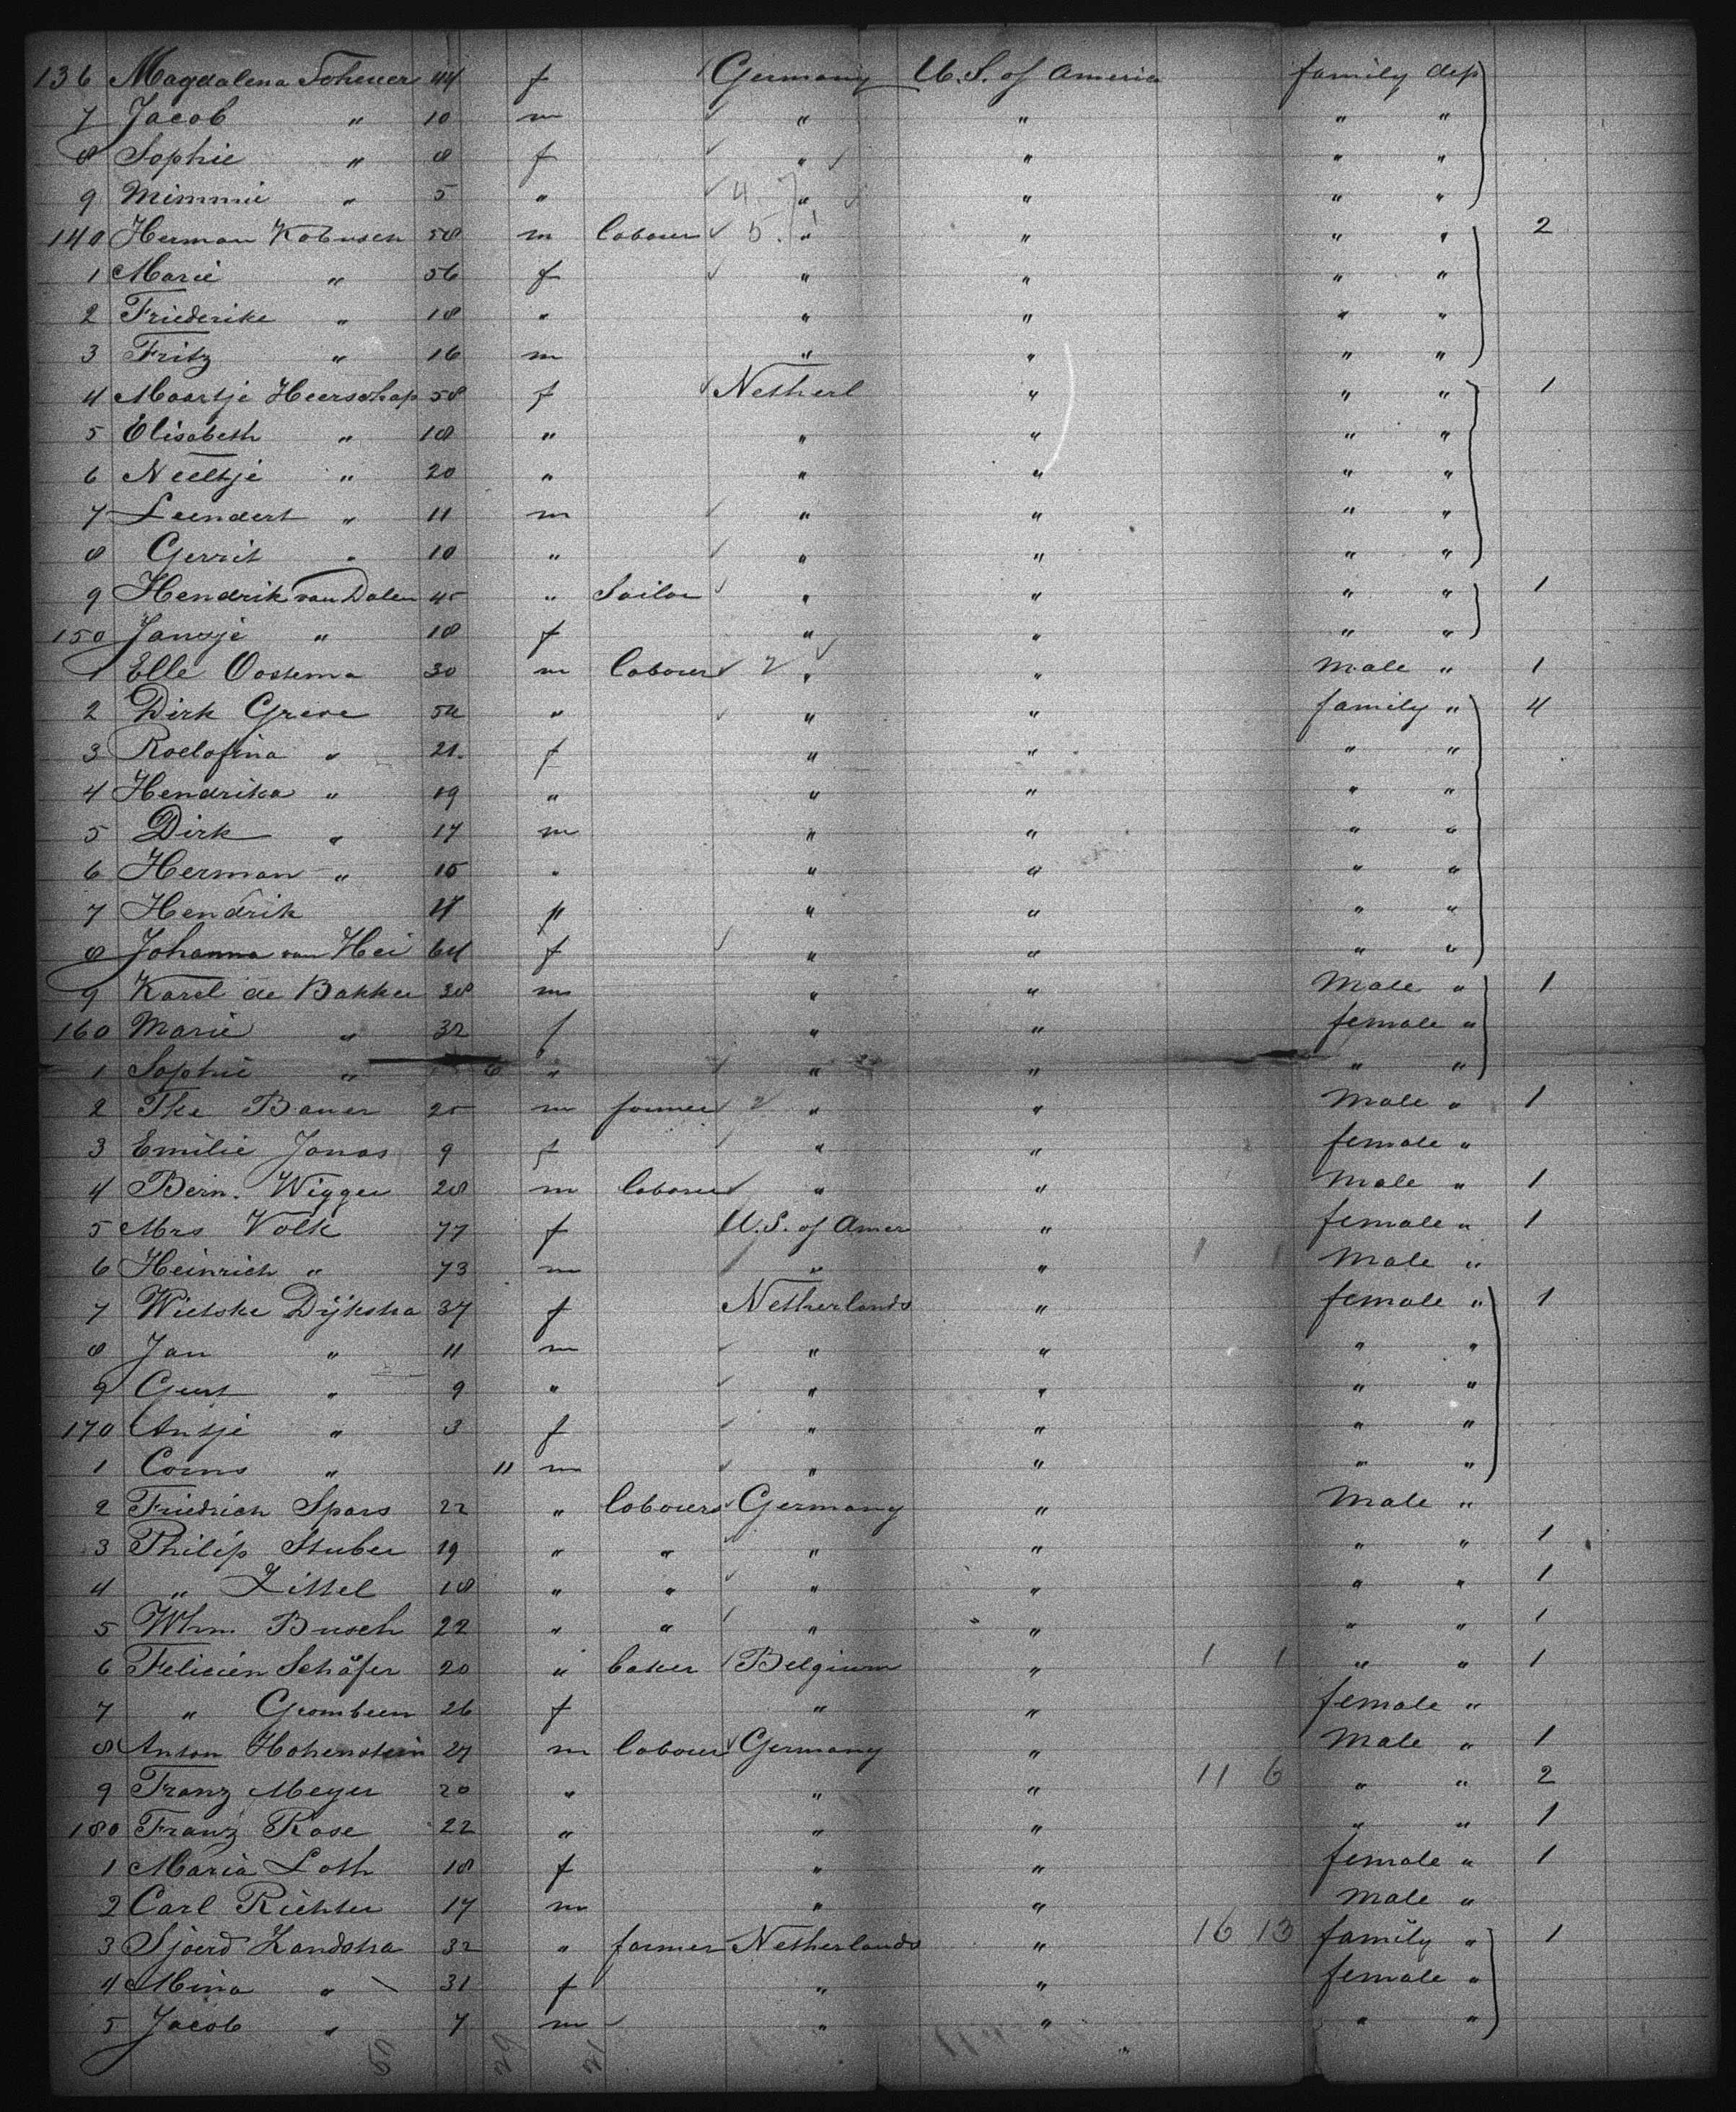 136 Magdalena Scheuer 44 f Germany U.S. of America family dep
7 Jacob " 10 m " " " "
8 Sophie " 8 f " " " "
9 Mimmie " 5 " 4. " " " "
140 Herman Kobusch 58 m labourer 5. " " " " 2
1 Marie " 56 f " " " "
2 Friederike " 18 " " " " "
3 Fritz " 16 m " " " "
4 Maartje Heerschap 58 f Netherl " " " 1
5 Elisabeth " 18 " " " " "
6 Neeltje " 20 " " " " "
7 Leendert " 11 m " " " "
8 Gerrit " 10 " " " " "
9 Hendrik van Dalen 45 " Sailor " " " " 1
150 Jansje " 18 f " " " "
1 Elle Oostema 30 m labourer 2 " " male " 1
2 Dirk Greve 54 " " " family " 4
3 Roelofina " 21. f " " " "
4 Hendrika " 19 " " " " "
5 Dirk " 17 m " " " "
6 Herman " 15 " " " " "
7 Hendrik " " " "
8 Johanna van Hei 64 f " " " "
9 Karel de Bakker 38 m " " male " 1
160 Marie " 32 f " " female "
1 Sophie " 6 " " " " "
2 Ike Bauer 25 m farmer 2 " " male " 1
3 Emilie Jonas 9 f " " female "
4 Bern. Wigger 28 m labourer " " male " 1
5 Mrs Volk 77 f U.S. of Amer " female " 1
6 Heinrich " 73 m " " 1 1 male "
7 Wietske Dijkstra 37 f Netherlands " female " 1
8 Jan " 11 m " " " "
9 Geert " 9 " " " " "
170 Antje " 3 f " " " "
1 Corns " 11 m " " " "
2 Friedrich Spars 22 " labourer Germany " male "
3 Philip Stuber 19 " " " " " " 1
4 " Zittel 18 " " " " " " 1
5 Whm. Busch 22 " " " " " " 1
6 Felicien Schäfer 20 " baker Belgium " 1 1 " " 1
7 " Grombeen 26 f " " female "
8 Anton Hohenstein 27 m labourer Germany " male " 1
9 Franz Meyer 20 " " " 11 6 " " 2
180 Franz Rose 22 " " " " " 1
1 Maria Loth 18 f " " female " 1
2 Carl Richter 17 m " " male "
3 Sjoerd Zandstra 32 " farmer Netherlands " 16 13 family " 1
4 Mina " 31 f " " female "
5 Jacob " 7 m " " " "